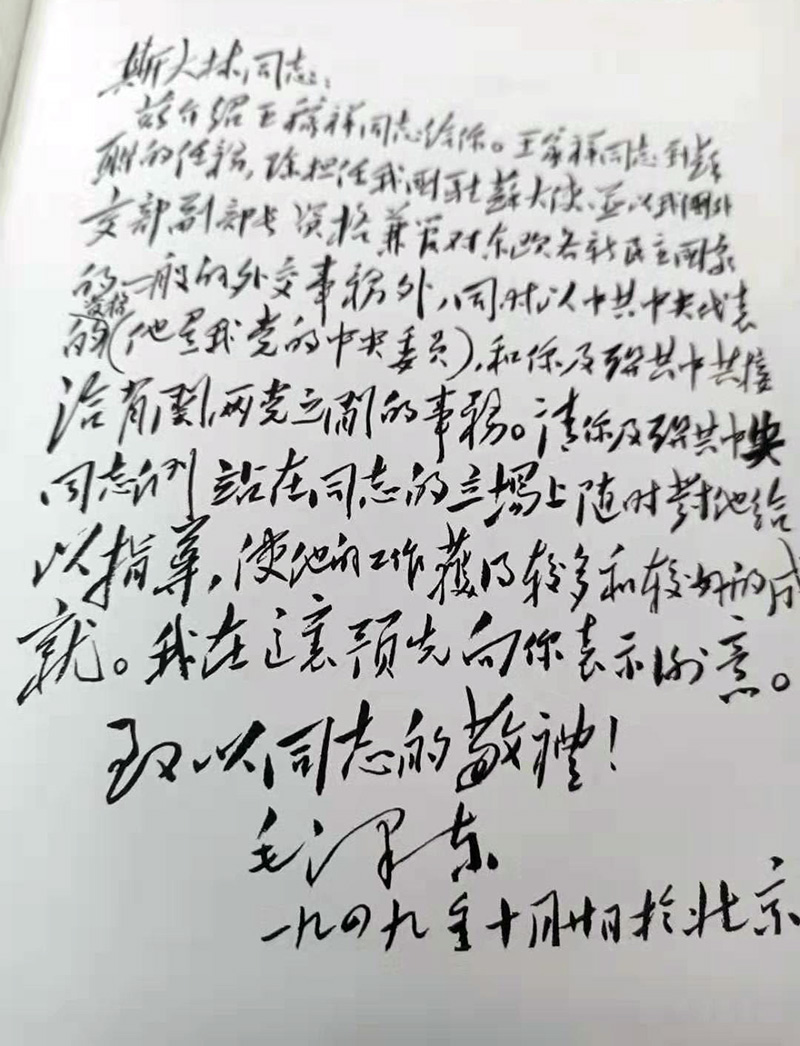 斯大林同志：
兹介绍王稼祥同志给你。王稼祥同志到蘇
聯的任務，除担任我国駐蘇大使、並以我国外
交部副部长資格兼管对东欧各新民主国家
的一般的外交事務外，同时以中共中央代表
資格
的(他是我党的中央委员)，和你及聯共中央接
洽有関両党之間的事務。請你及聯共中央
同志们站在同志的立場上随时對他給
以指導，使他的工作獲得较多和较好的成
就。我在這裏预先向你表示谢意。
致以同志的敬禮！
毛泽东
一九四九年十月廿日於北京